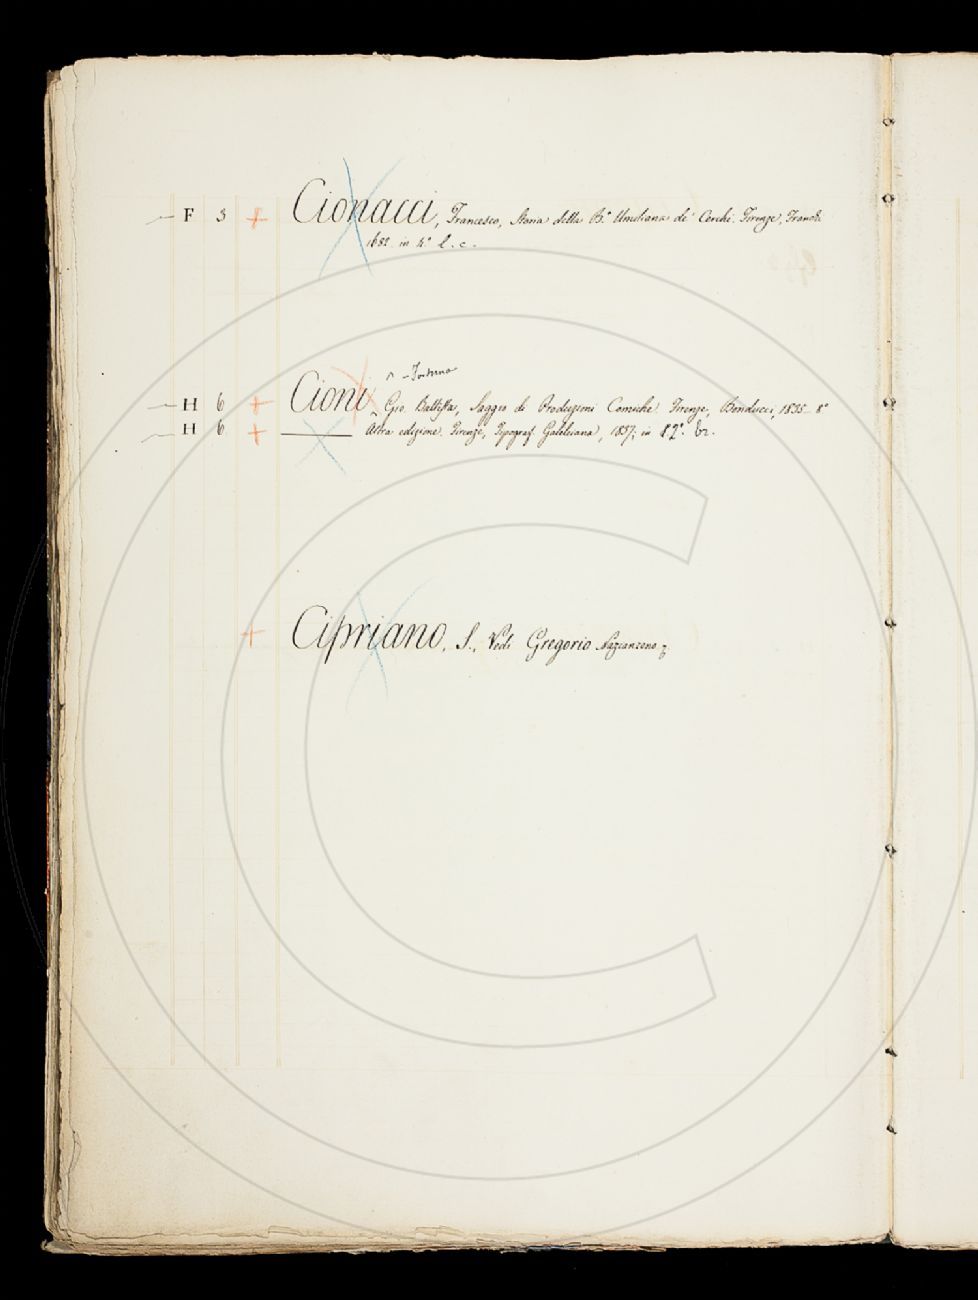 F 3 + Cionacci, Francesco, Storia della B.ª Umiliana de' Cerchi. Firenze, Franchi
1682. in 4.º l. c.
^ - Fortuna
H 6 + Cioni Gio. Battista, Saggio di Produzioni Comiche. Firenze, Bonducci, 1835. 8º
H 6 + ——— Altra edizione. Firenze, Tipograf Galileiana, 1837; in 12º. br.
+ Cipriano, S., Vedi Gregorio Nazianzeno